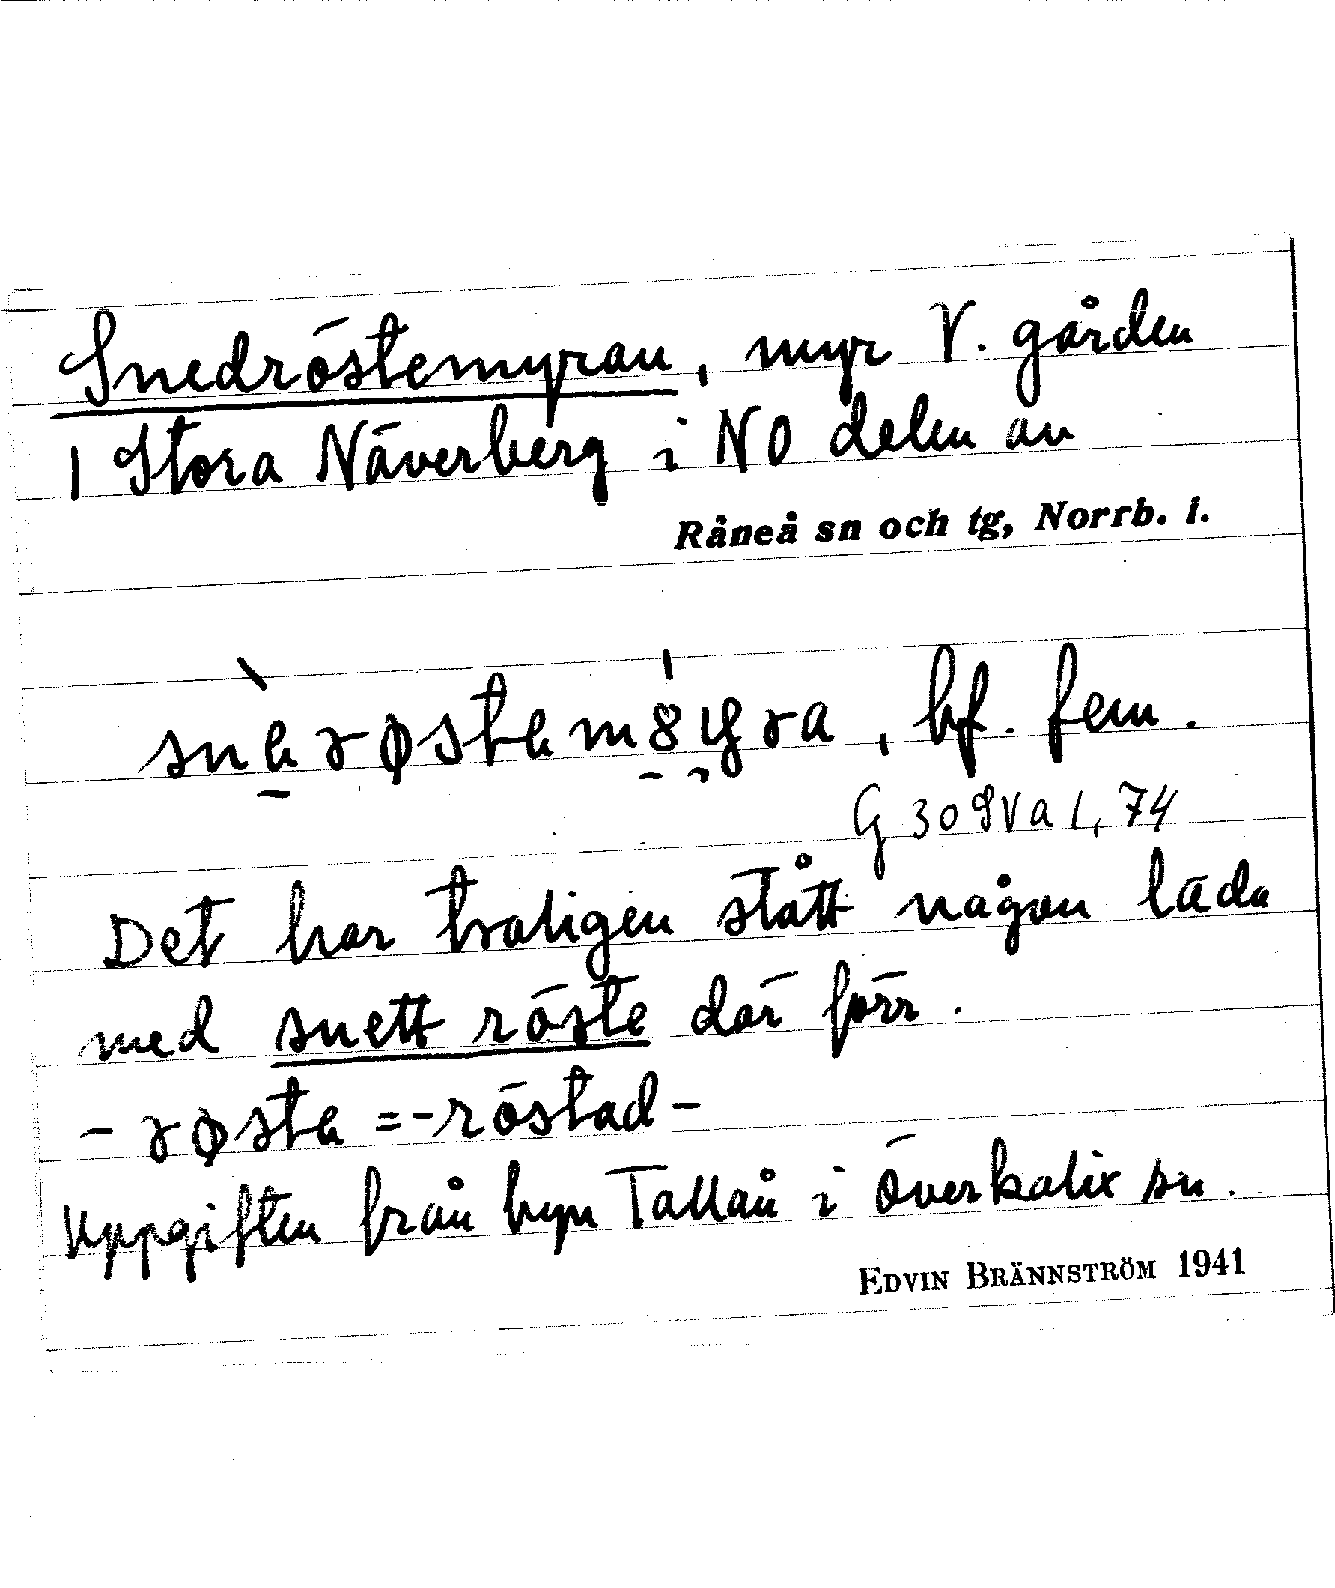 Snedröstemyran, myr V. gården
1 Stora Näverberg i NO delen av
Råneå sn och tg, Norrb. l.
bf. fem.
G 30 SVa 1, 74
Det har troligen stått någon lada
med snett röste där förr.
-røsta =-röstad-
Uppgiften från byn Tallån i Överkalix sn.
EDVIN BRÄNNSTRÖM 1941